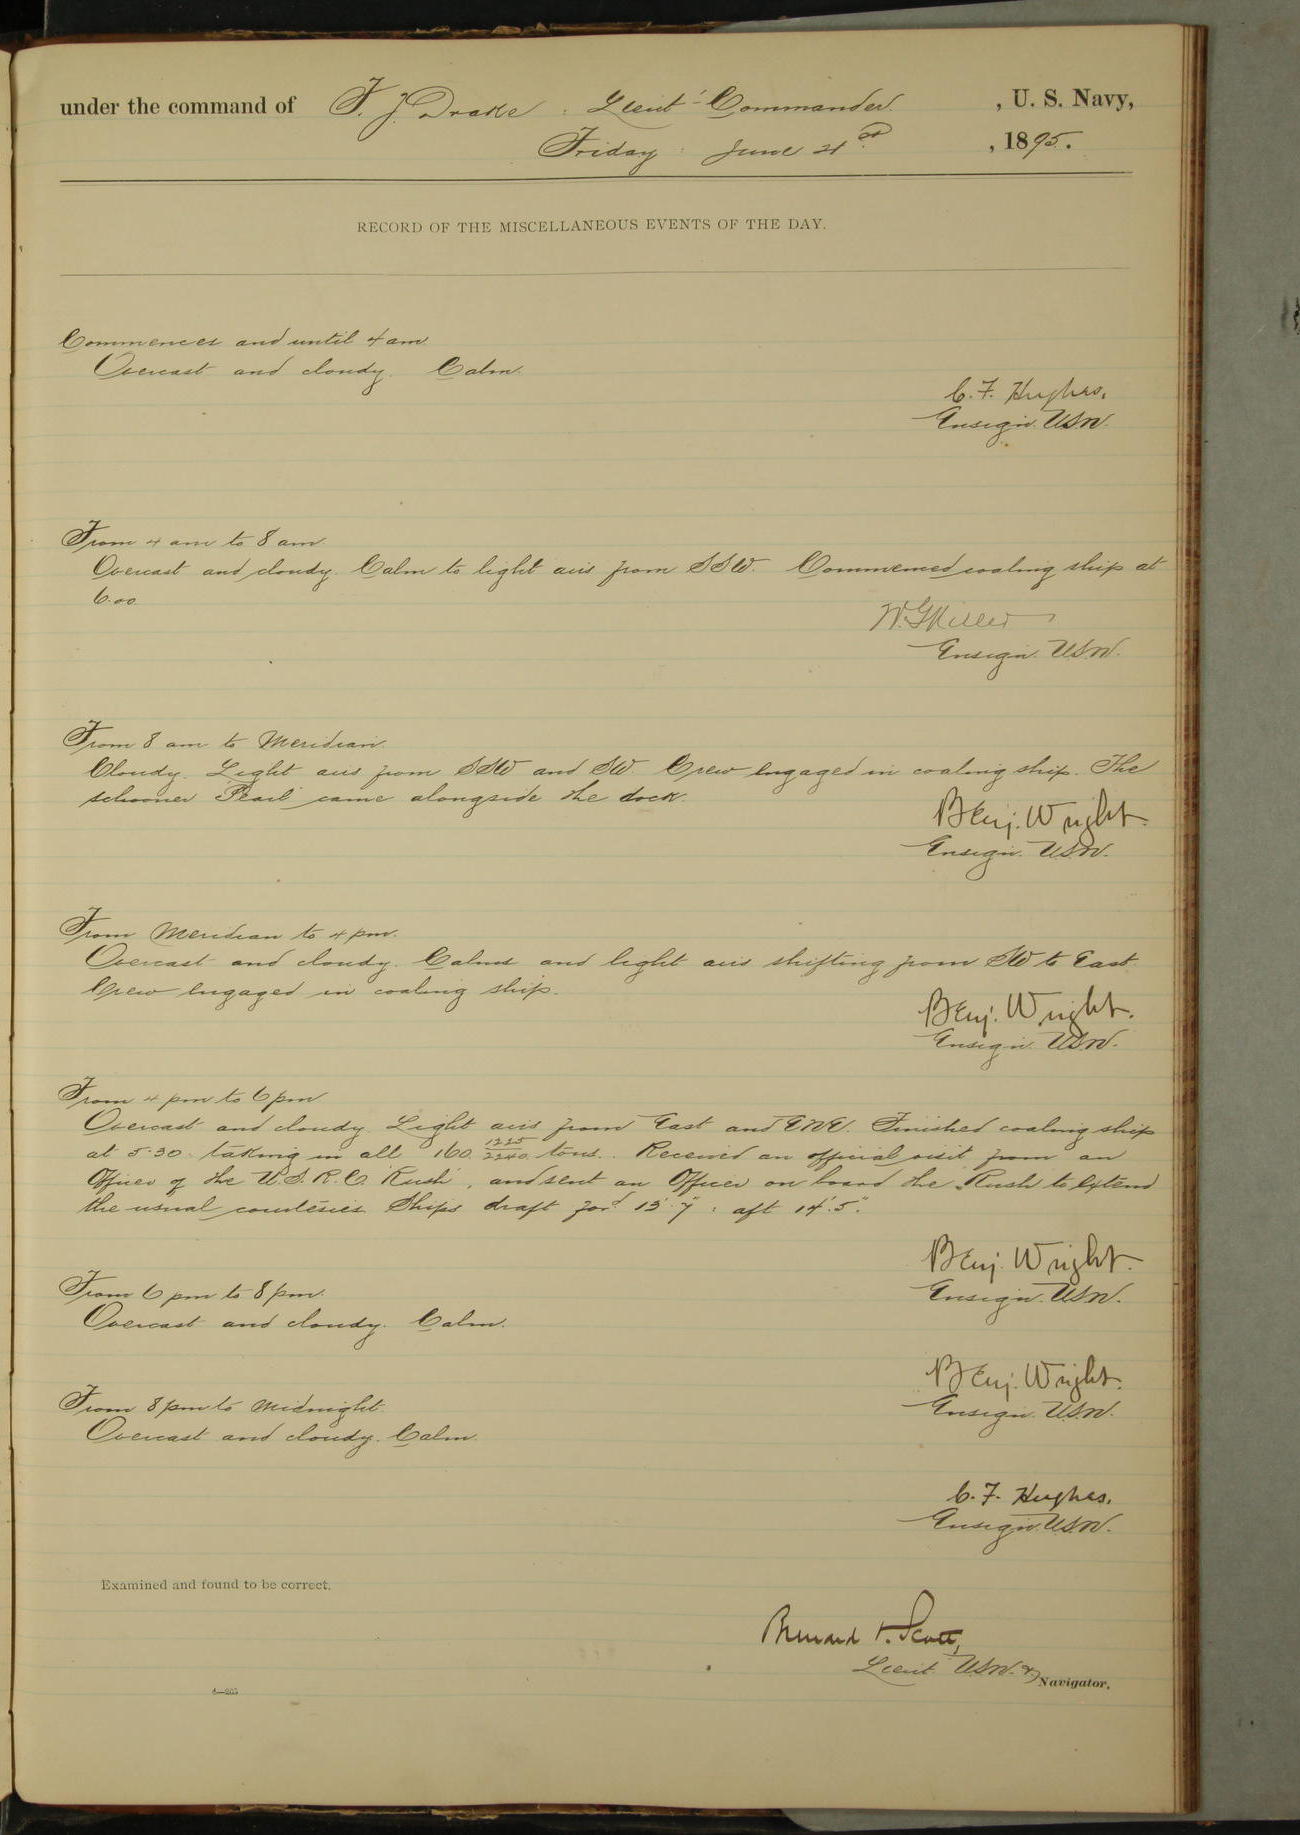 under the command of F. J. Drake : Lieut-Commander , U. S. Navy,
Friday : June 21st , 1895.
RECORD OF THE MISCELLANEOUS EVENTS OF THE DAY.
Commences and until 4 am.
Overcast and cloudy. Calm.
C. F. Hughes,
Ensign. U.S.N.
From 4 am to 8 am.
Overcast and cloudy. Calm to light airs from SSW. Commenced coaling ship at
6.00
W. G. Miller
Ensign. U.S.N.
From 8 am to Meridian.
Cloudy. Light airs from SSW and SW. Crew engaged in coaling ship. The
schooner "Pearl" came alongside the dock.
Benj. Wright.
Ensign. U.S.N.
From Meridian to 4 pm.
Overcast and cloudy. Calms and light airs shifting from SW to East.
Crew engaged in coaling ship.
Benj. Wright.
Ensign. U.S.N.
From 4 pm to 6 pm
Overcast and cloudy. Light airs from East and ENE. Finished coaling ship
at 5.30 taking in all 160 1225/2240 tons. Received an official visit from an
Officer of the U.S.R.C. "Rush", and sent an Officer on board the "Rush" to extend
the usual courtesies. Ships draft for'd 13'.7" : aft 14'.5".
Benj. Wright.
Ensign. U.S.N.
From 6 pm to 8 pm.
Overcast and cloudy. Calm.
Benj. Wright.
Ensign. U.S.N.
From 8 pm to Midnight.
Overcast and cloudy. Calm.
C. F. Hughes,
Ensign. U.S.N.
Examined and found to be correct.
Bernard O. Scott,
Lieut U.S.N. & Navigator.